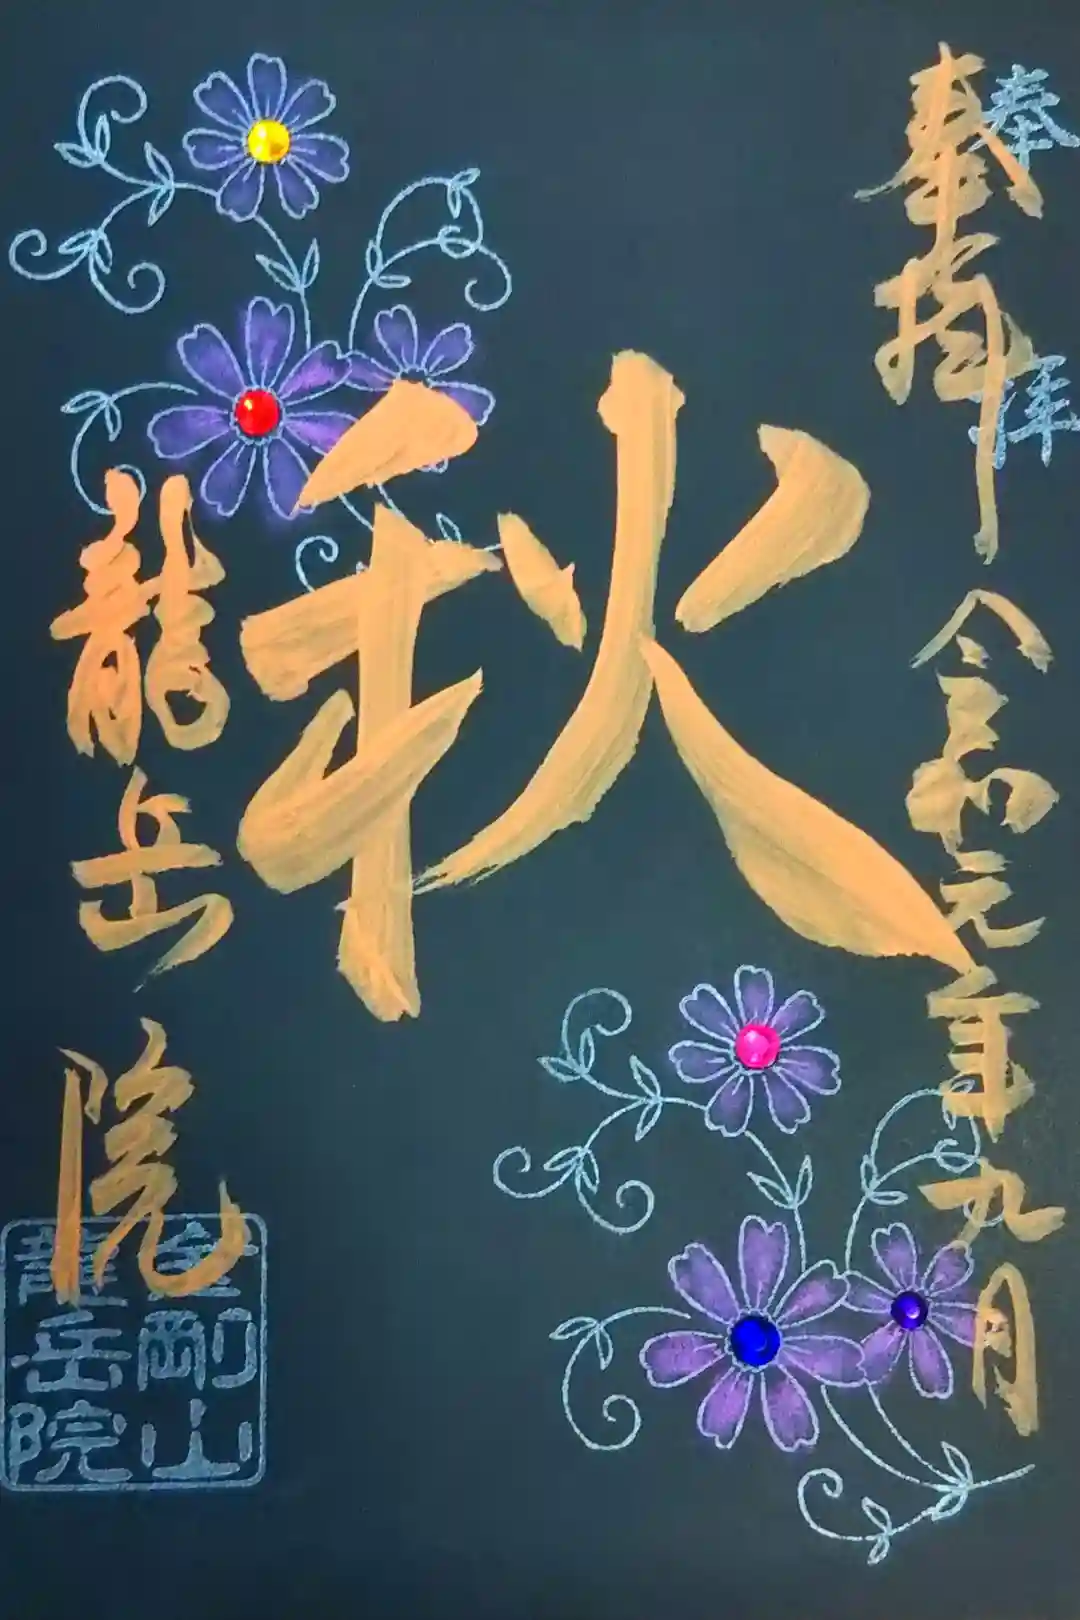 奉拝
奉拝 令和元年九月
秋
龍岳院
金剛山
龍岳院